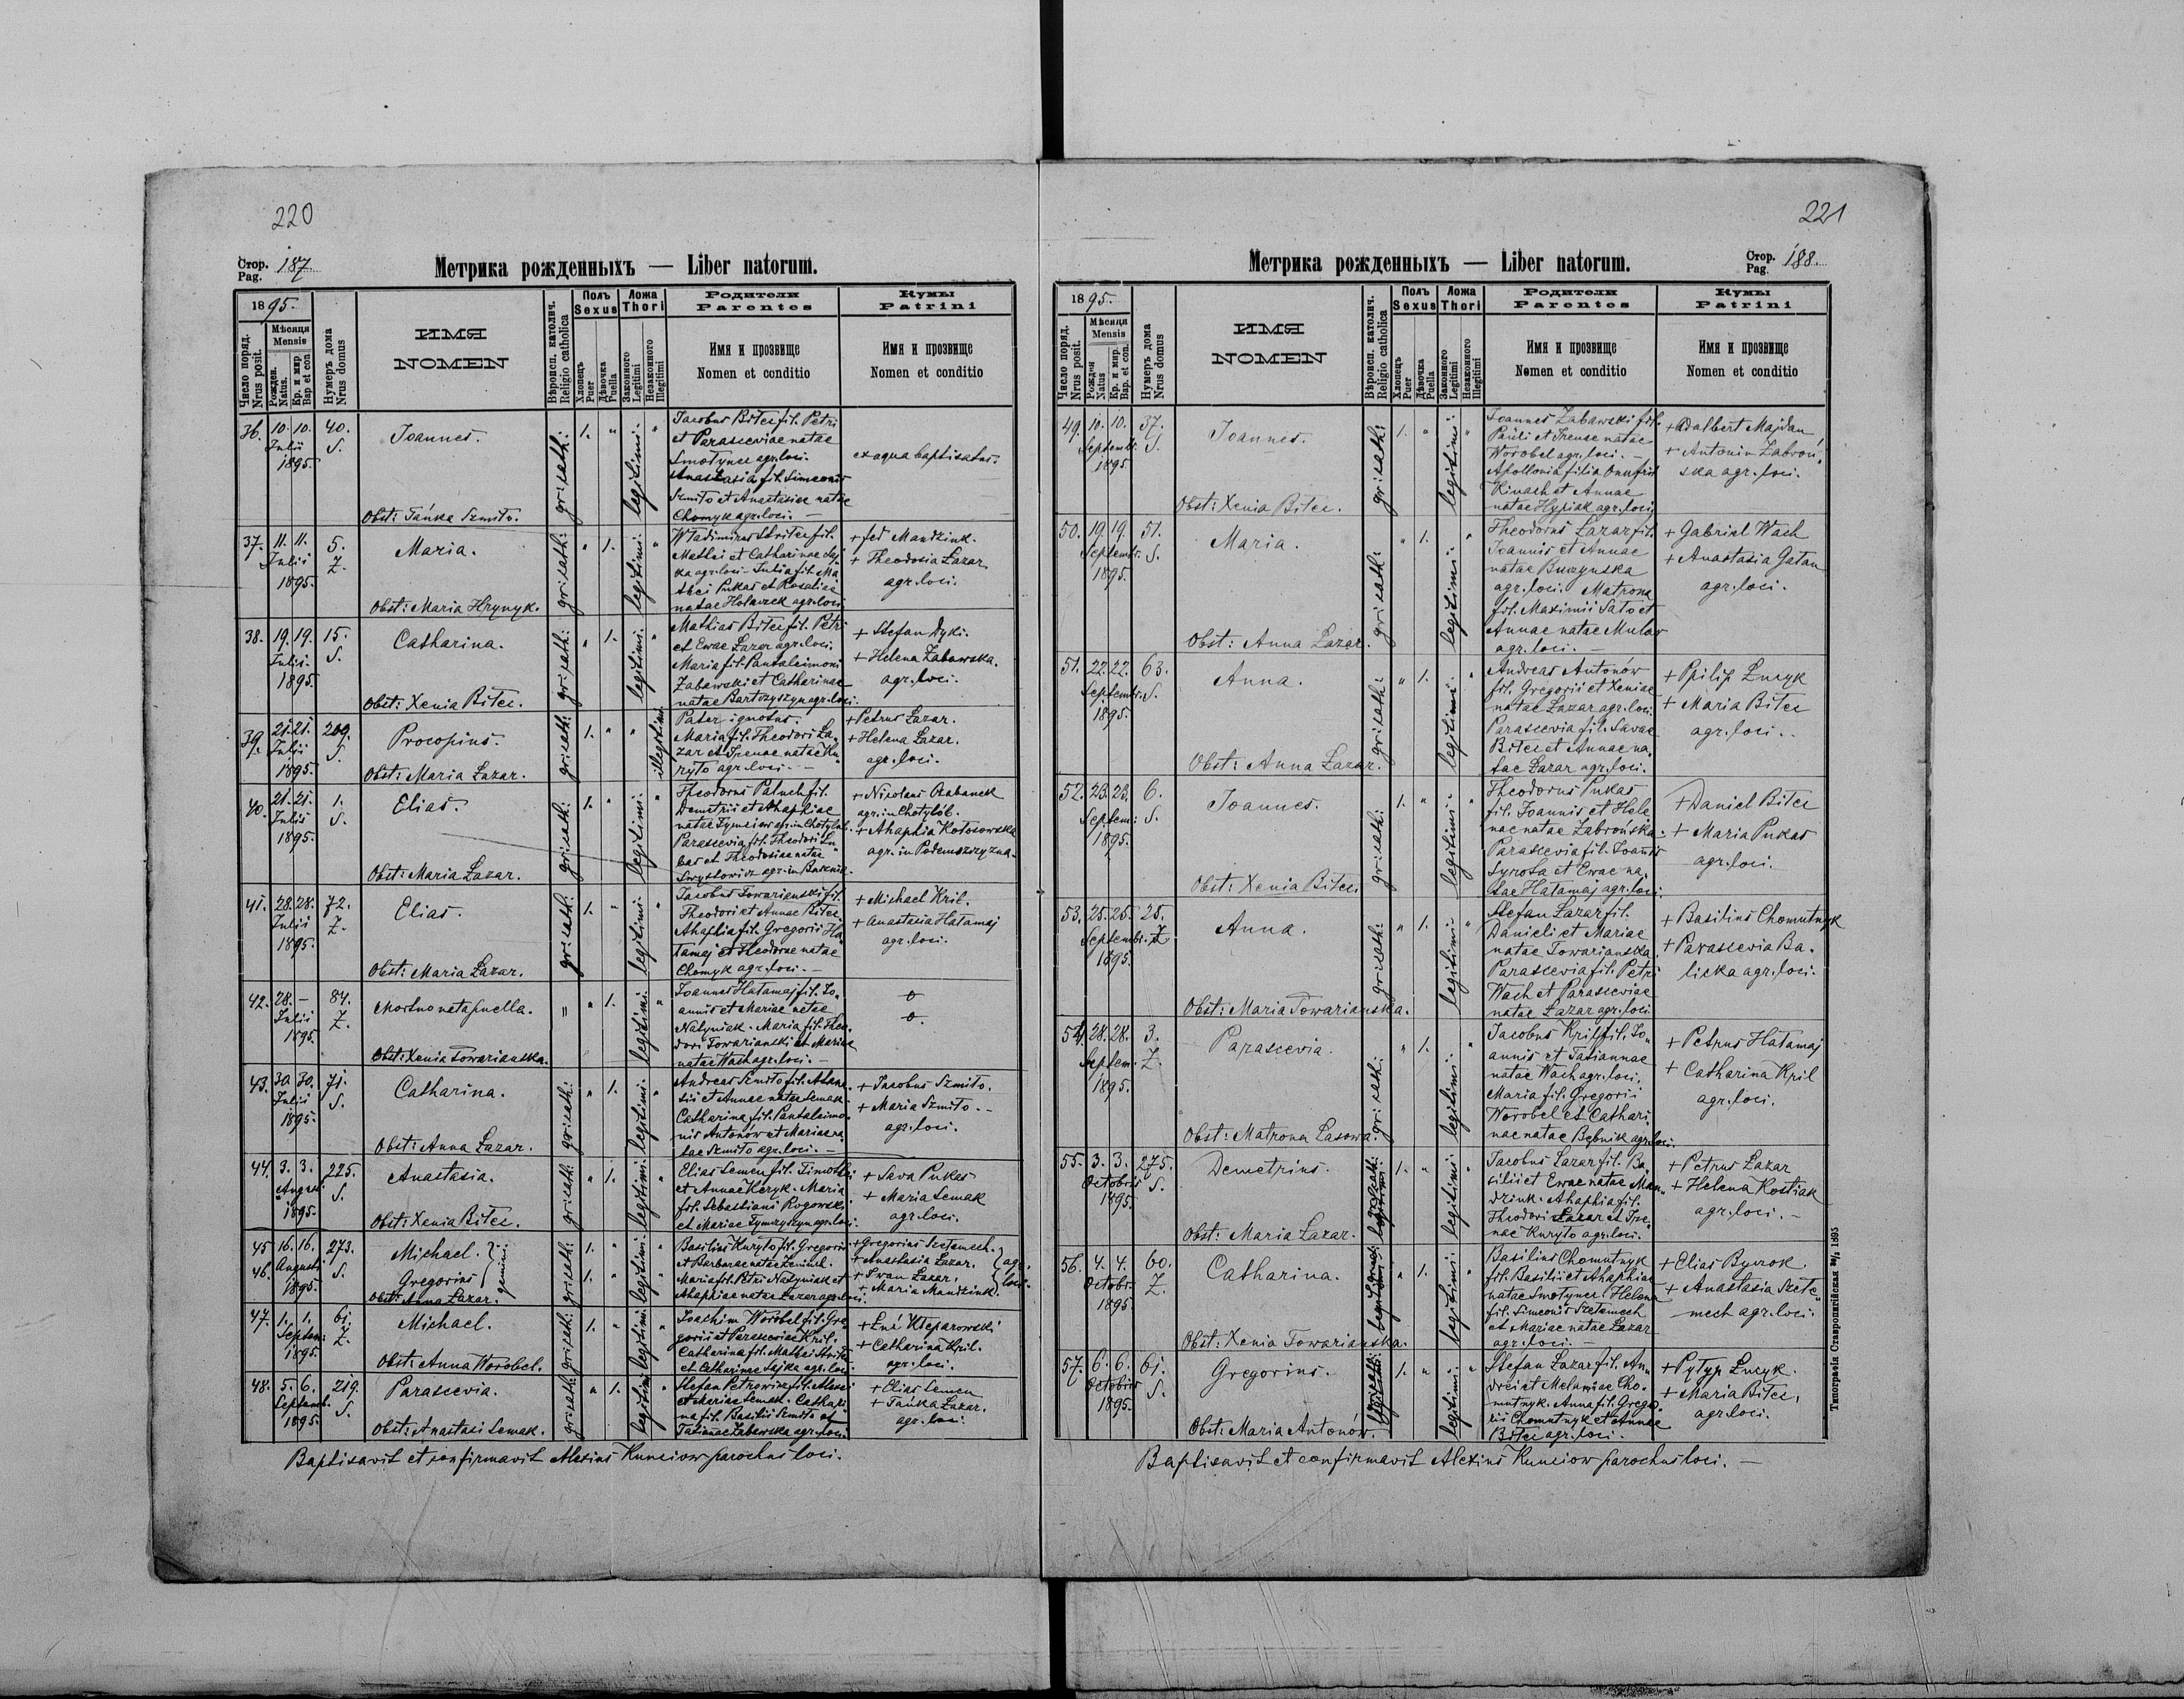 220
Стор. Pag. 187.
Метрика рожденныхъ — Liber natorum.
1895.
Число поряд. Nrus posit.
Мѣсяця Mensis
Рожден. Natus.
Кр. и мир Bap. et con.
Нумеръ дома Nrus domus
ИМЯ
NOMEN
Вѣроисп. католич. Religio catholica
Полъ Sexus
Хлопець Puer
Дѣвочка Puella
Ложа Thori
Законного Legitimi
Незаконного Illegitimi
Родители
Parentes
Имя и прозвище
Nomen et conditio
Кумы
Patrini
Имя и прозвище
Nomen et conditio
36. 10. 10. Julii 1895. 40. S.
Joannes.
Obst: Tańka Szmiło.
gr: cath: 1. " legitimi: "
Jacobus Bitec fil. Petri
et Parasceviae natae
Smotynec agr. loci.
Anastasia fil. Simeonis
Szmiło et Anastasiae natae
Chomyk agr. loci. —
ex aqua baptisatus.
37. 11. 11. Julii 1895. 5. Z.
Maria.
Obst: Maria Hrynyk.
gr: cath: " 1. legitimi: "
Wladimirus Stritec fil.
Mathei et Catharinae Saj
ka agr. loci - Julia fil. Ma
thei Pukas et Rosaliae
natae Holawek agr. loci
+ fed Mandziuk.
+ Theodosia Łazar
agr. loci.
38. 19. 19. Julii 1895. 15. S.
Catharina.
Obst: Xenia Bitec.
gr: cath: " 1. legitimi: "
Mathias Bitec fil. Petri
et Ewae Łazar agr. loci.
Maria fil. Pantaleimoni
Zabawski et Catharinae
natae Bartoszyszyn agr. loci.
+ Stefan Dyki.
+ Helena Zabawska.
agr. loci.
39. 21. 21. Julii 1895. 209. S.
Procopius.
Obst: Maria Łazar.
gr: cath: 1. " " illegitimi.
Pater ignotus.
Maria fil. Theodori Ła„
zar et Irenae natae Ku„
ryło agr. loci. —
+ Petrus Łazar.
+ Helena Łazar.
agr. loci.
40. 21. 21. Julii 1895. 1. S.
Elias.
Obst: Maria Łazar.
gr: cath: 1. " legitimi: "
Theodorus Paluch fil.
Demetrii et Ahaphiae
natae Tymciow agr. in Chotylub.
Parascevia fil. Theodori
bas et Theodosiae natae
+ Nicolaus
agr. in Chotylób.
+ Ahaphia Kołosowska
agr. in Podemszczyzna.
41. 28. 28. Julii 1895. 72. Z.
Elias.
Obst: Maria Łazar.
gr: cath: 1. " legitimi: "
Jacobus Towarianski fil.
Theodori et Annae Bitec.
Ahaphia fil. Gregorii Ha„
tamaj et Theodorae natae
Chomyk agr. loci. —
+ Michael Kril.
+ Anastasia Hatamaj
agr. loci.
42. 28. — Julii 1895. 84. Z.
Mortuo nata puella.
Obst: Xenia Towarianska.
" " 1. legitimi: "
Joannes Hatamaj fil. Jo„
annis et Mariae natae
Natyniak. Maria fil. Theo„
dori Towarianski et Mariae
natae Wach agr. loci. —
0
0.
43. 30. 30. Julii 1895. 71. S.
Catharina.
Obst: Anna Łazar.
gr: cath: " 1. legitimi: "
Andreas Szmiło fil. Athana„
sii et Annae natae Semak.
Catharina fil. Pantaleimo„
nis Antonów et Mariae na„
tae Szmiło agr. loci. —
+ Jacobus Szmiło.
+ Maria Szmiło. -
agr. loci.
44. 3. 3. Augusti 1895. 225. S.
Anastasia.
Obst: Xenia Bitec.
gr: cath: " 1. legitimi: "
Elias Semen fil. Timothei
et Annae Keryk. Maria
fil. Sebastiani Rogowski
et Mariae Tymczyszyn agr. loci.
+ Sava Pukas
+ Maria Semak
agr. loci.
45 46. 16. 16. Augusti 1895. 273. S.
Michael.
Gregorius } gemini.
Obst: Anna Łazar.
gr: cath: 1. 1. legitimi: "
Basilius Kuryło fil. Gregorii
et Barbarae natae
Maria fil. Petri Natyniak et
Ahaphiae natae Łazar agr. loci.
+ Gregorius Szetemech.
+ Anastasia Łazar.
+ Iwan Łazar.
+ Maria Mandziuk. } agr. loci.
47. 1. 1. Septem: 1895. 61. Z.
Michael.
Obst: Anna Worobel.
gr: cath: 1. " legitimi: "
Joachim Worobel fil. Gre„
gorii et Parasceviae Kril.
Catharina fil. Mathei Stritec
et Catharinae Sajka agr. loci.
+ Łuć Kleparowski
+ Catharina Kril.
agr. loci.
48. 5. 6. Septemb. 1895. 219. S.
Parascevia.
Obst: Anastasi Semak.
gr: cath: " 1. legitimi: "
Stefan Petrowicz fil. Alexei
et Mariae Semak. Cathari„
na fil. Basilii Szmiło et
Tatianae Zabawska agr. loci.
+ Elias Semen
+ Tańka Łazar.
agr. loci.
Baptisavit et confirmavit Alexius Kunciow parochus loci.
221
Стор. Pag. 188.
Метрика рожденныхъ — Liber natorum.
1895.
Число поряд. Nrus posit.
Мѣсяця Mensis
Рожден Natus
Кр. и мир. Bap. et con.
Нумеръ дома Nrus domus
ИМЯ
NOMEN
Вѣроисп. католич. Religio catholica
Полъ Sexus
Хлопець Puer
Дѣвочка Puella
Ложа Thori
Законного Legitimi
Незаконного Illegitimi
Родители
Parentes
Имя и прозвище
Nomen et conditio
Кумы
Patrini
Имя и прозвище
Nomen et conditio
49. 10. 10. Septemb: 1895 37. S.
Joannes.
Obst: Xenia Bitec.
gr: cath: 1. " legitimi: "
Joannes Zabawski fil.
Pauli et Irenae natae
Worobel agr. loci. —
Apollonia filia Onufrii
Kinach et Annae
natae Hypiak agr. loci
+ Adalbert Majdan
+ Antonia Zabroń„
ska agr. loci.
50. 19. 19. Septemb. 1895. 51. S.
Maria.
Obst: Anna Łazar.
gr: cath: " 1. legitimi: "
Theodorus Łazar fil.
Joannis et Annae
natae Buczynska
agr. loci. Matrona
fil. Maximii Sało et
Annae natae Mular
agr. loci. —
+ Gabriel Wach
+ Anastasia Gatan
agr. loci.
51. 22. 22. Septemb. 1895. 63. S.
Anna.
Obst: Anna Łazar.
gr: cath: " 1. legitimi: "
Andreas Antonów
fil. Gregorii et Xeniae
natae Łazar agr. loci.
Parascevia fil. Savae
Bitec et Annae na„
tae Łazar agr. loci.
+ Ppilip Łucyk
+ Maria Bitec
agr. loci.
52. 23. 23. Septem: 1895. 6. S.
Joannes.
Obst: Xenia Bitec.
gr: cath: 1. " legitimi: "
Theodorus Pukas
fil. Joannis et Hele
nae natae Zabrońska.
Parascevia fil. Joanis
Syrota et Ewae na„
tae Hatamaj agr. loci.
+ Daniel Bitec
+ Maria Pukas
agr. loci.
53. 25. 25. Septemb. 1895. 25. Z
Anna.
Obst: Maria Towarianska.
gr: cath: " 1. legitimi: "
Stefan Łazar fil.
Danieli et Mariae
natae Towarianska.
Parascevia fil. Petri
Wach et Parasceviae
natae Łazar agr. loci
+ Basilius Chomutnyk
+ Parascevia Ba„
licka agr. loci.
54. 28. 28. Septem. 1895. 3. Z.
Parascevia.
Obst: Matrona Lasowa.
gr: cath: " 1. legitimi: "
Jacobus Kril fil. Jo„
annis et Tatiannae
natae Wach agr. loci.
Maria fil. Gregorii
Worobel et Cathari„
nae natae Bębnik agr. loci.
+ Petrus Hatamaj
+ Catharina Kril
agr. loci.
55. 3. 3. Octobris 1895. 275. S.
Demetrius.
Obst: Maria Łazar.
gr: cath: 1. " legitimi: "
Jacobus Łazar fil. Ba„
silii et Ewae natae Man„
dziuk. Ahaphia fil.
Theodori Łazar et Ire„
nae Kuryło agr. loci.
+ Petrus Łazar
+ Helena Kostiak
agr. loci. —
56. 4. 4. Octobr. 1895 60. Z.
Catharina.
Obst: Xenia Towarianska.
" 1. legitimi: "
Basilius Chomutnyk
fil. Basilii et Ahaphiae
natae Smotynec Helena
fil. Simeonis Szetemech
et Mariae natae Łazar
agr. loci. —
+ Elias Byczok.
+ Anastasia Szete„
mech agr. loci.
57. 6. 6. Octobris 1895. 61. S.
Gregorius.
Obst: Maria Antonów.
gr: cath: 1. " legitimi: "
Stefan Łazar fil. An„
drei et Melaniae Cho„
mutnyk. Anna fil. Grego„
rii Chomutnyk et Annae
Bitec agr. loci.
+ Pylyp Łucyk.
+ Maria Bitec,
agr. loci.
Baptisavit et confirmavit Alexius Kunciow parochus loci. —
Типографія Ставропигійская 1895